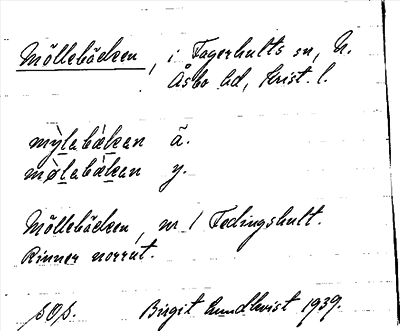 Möllebäcken, i Fagerhults sn, N.
Åsbo hd, Krist. l.
mỳlabæ̀kan ä.
mø̀labæ̀kan y.
Möllebäcken, nr 1 Fedingshult.
Rinner norrut.
Birgit Lundkvist 1939.